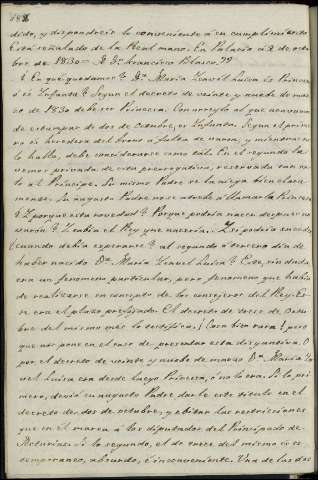 188
dido, y dispondreis lo conveniente á su cumplimiento
Está señalado de la Real mano. En Palacio á 2 de octu-
bre de 1830 = A D. Francisco Blasco."
¿ En que quedamos? ¿ Dª María Isavél Luisa és Princesa
ó és Infanta? Segun el decreto de veinte y nueve de mar-
zo de 1830 debe ser Princesa. Con arreglo al que acavamos
de estampar de dos de octubre, és Infanta. Segun el prime-
ro és heredera del trono á falta de varon, y mientras no
lo halla, debe considerarse como tál. En el segundo la
vemos privada de esta prerrogativa, reservada tan so-
lo al Principe. Su mismo Padre se la niega bien clara-
mente. Su augusto Padre no se atreve á llamarla Princesa
¿ Y porque esta novedad? Porque podria nacer despues un
varon? ¿ Y sabia el Rey que naceria? ¿ Si podria en caso
¿ cuando debia esperarse? al segundo ó tercero dia de
haber nacido Dª María Isavel Luisa? Este, sin duda
era un fenomeno particular, pero fenomeno que habia
de realizarse en concepto de los consejeros del Rey. Es-
te era el plazo prefijado. El decreto de trece de Octu-
bre del mismo mes lo testifica. ¡ Cosa bien rara! pero
que nos pone en el caso de presentar esta disyuntiva. O
por el decreto de veinte y nueve de marzo Dª María Isa-
vél Luisa era desde luego Princesa, ó no lo era. Si lo pri-
mero, devió su augusto Padre darle este titulo en el
decreto de dos de octubre, y evitar las restricciones
que en él marca á los diputados del Principado de
Asturias. Si lo segundo, el de trece del mismo és es-
temporaneo, absurdo, é inconveniente. Una de las dos